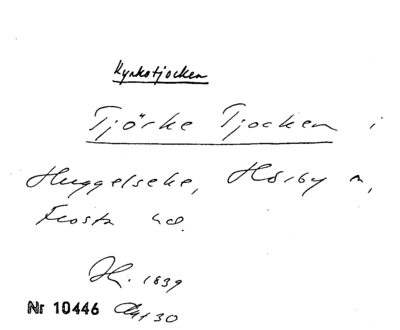 Kyrkotjocken
Tjörke Tjocken i
Huggelseke, Hörby n,
Frosta hd.
H. 1839
Nr 10446